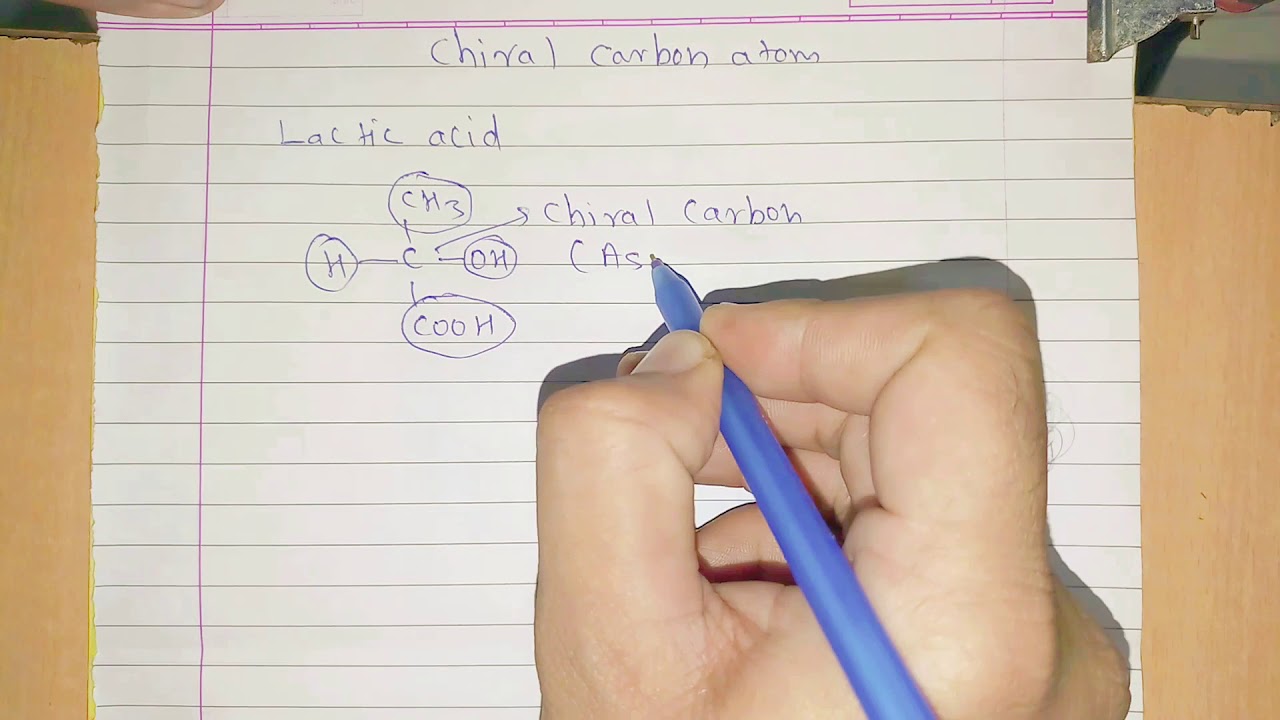 Chiral carbon atom
Lactic acid
CH3
Chiral Carbon
H—C—OH (As
COOH